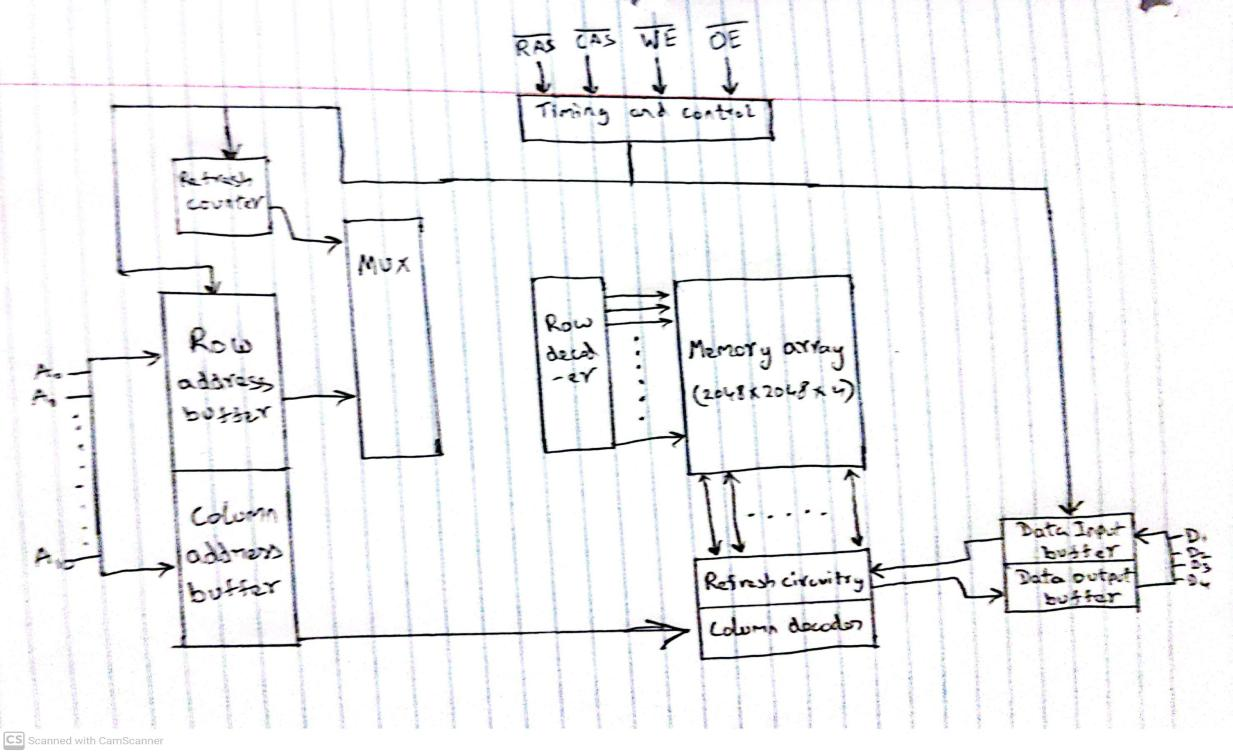 RAS CAS WE OE
Timing and control
Refresh
counter
MUX
Row
address
buffer
Column
address
buffer
A₀
A₁
A₁₀
Row
decod
-er
Memory array
(2048 x 2048 x 4)
Refresh circuitry
Column decoder
Data Input
buffer
Data output
buffer
D₁
D₂
D₃
D₄
CS Scanned with CamScanner